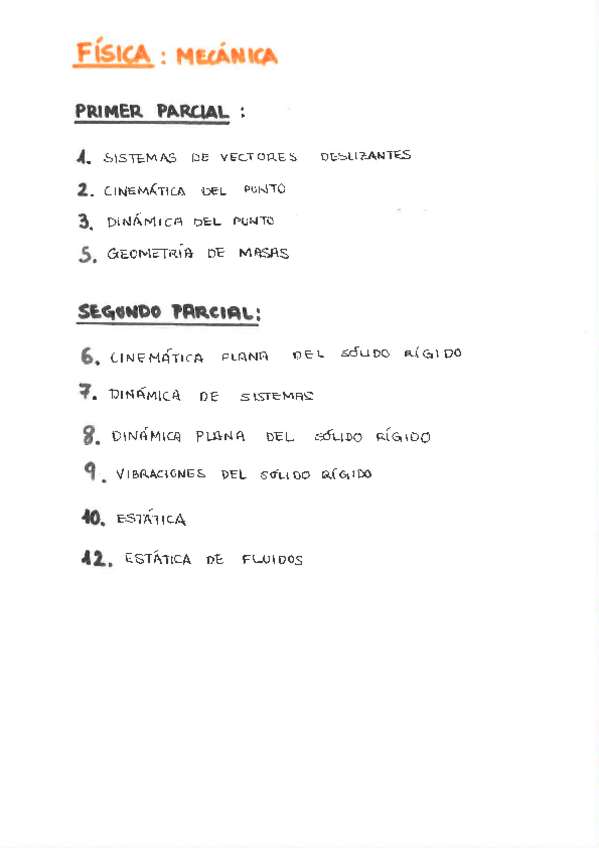 FÍSICA : MECÁNICA
PRIMER PARCIAL :
1. SISTEMAS DE VECTORES DESLIZANTES
2. CINEMÁTICA DEL PUNTO
3. DINÁMICA DEL PUNTO
5. GEOMETRÍA DE MASAS
SEGUNDO PARCIAL:
6. CINEMÁTICA PLANA DEL SÓLIDO RÍGIDO
7. DINÁMICA DE SISTEMAS
8. DINÁMICA PLANA DEL SÓLIDO RÍGIDO
9. VIBRACIONES DEL SÓLIDO RÍGIDO
10. ESTÁTICA
12. ESTÁTICA DE FLUIDOS